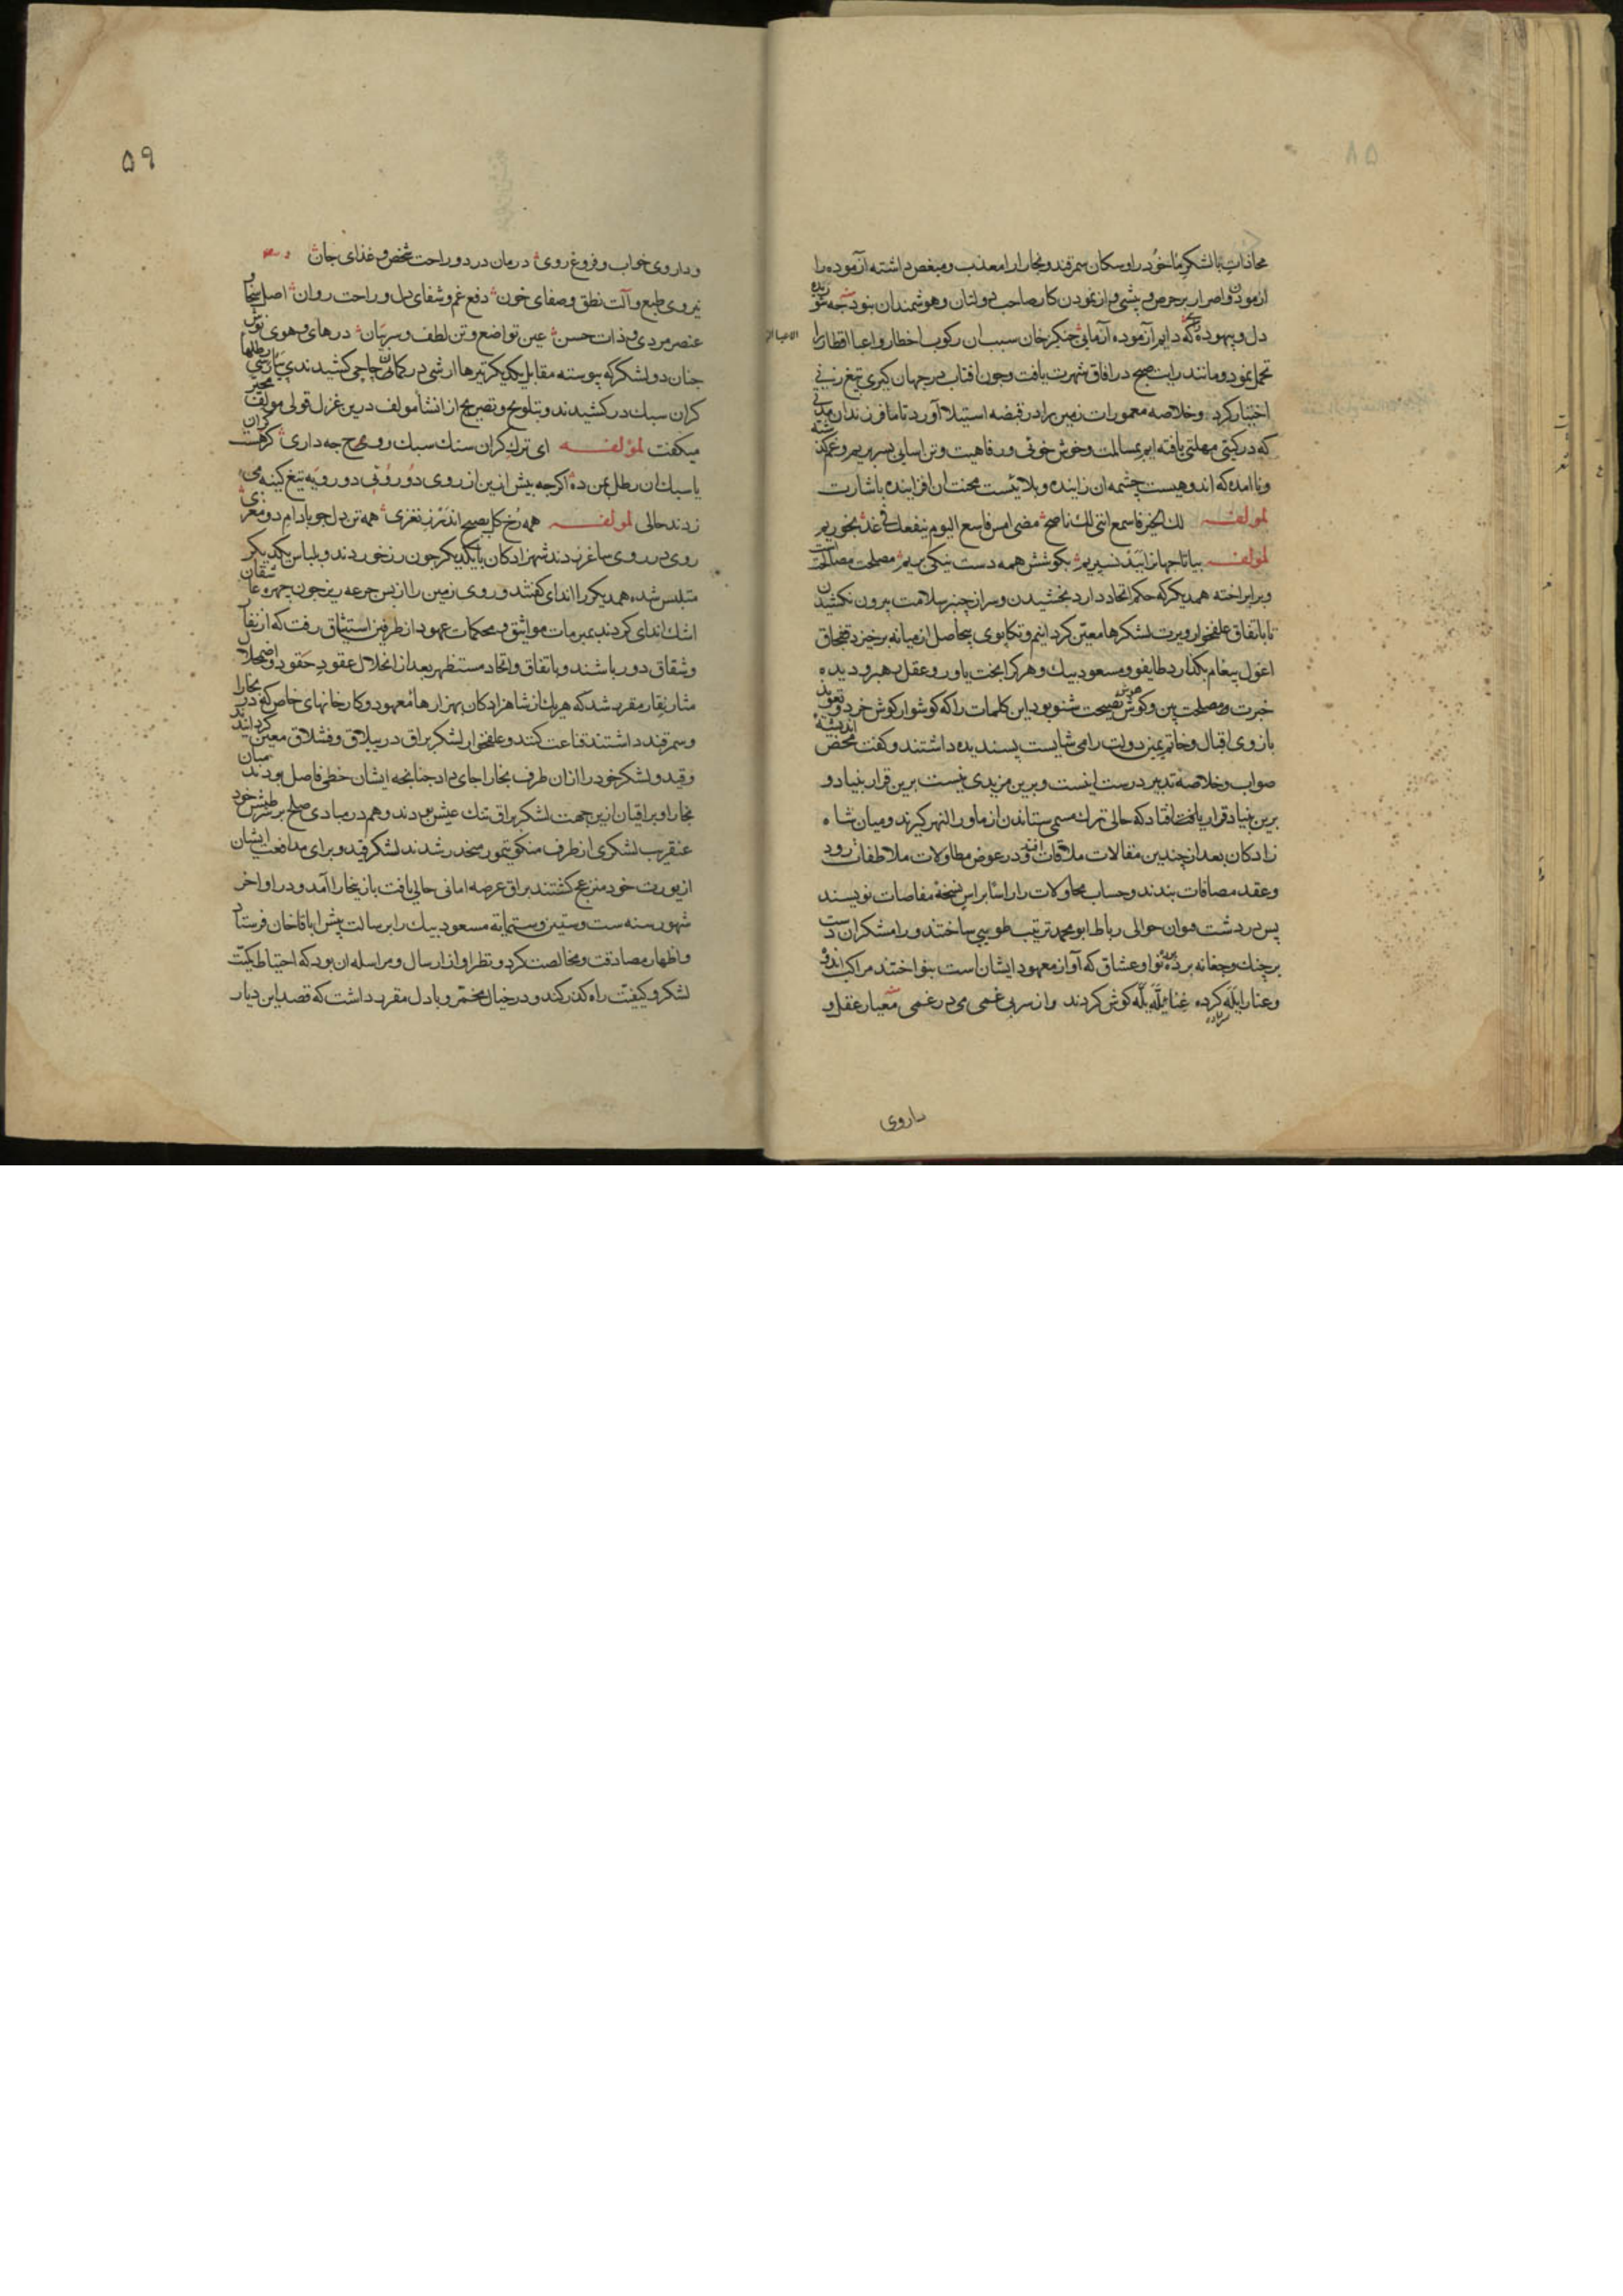 ۵۸
محاذات با لشکر ما خود را و سکان سمرقند و بخارا را معذب و مبغض داشته آزموده را
ازمودن و اصرار بر حرص و بیشی و از نمودن کار صاحب دولتان و هوشمندان نبود چه شو
دل و بیهوده که دایم آزموده آزمایی جنکزخان سبب ان رکوب اخطار و اعبا اقطار را
تحمل نمود و مانند رایت صبح در افاق شهرت یافت و چون افتاب در جهان کیری تیغ زنی
اختیار کرد و خلاصه معمورات زمین را در قبضه استیلا آورد تا ما فرزندان مدتی
که در کیتی مهلتی یافته ایم بمسالمت و خوش خوئی و رفاهیت و تن اسانی بسر بریم و غم
و ناامده که اندوهیست چشمه ان زاینده و بلائیست محنت ان افزاینده باشارت
لمولفه لك الخیر فاسمع اننی لك ناصح مضی امس فاسع الیوم ینفعك فی غد بخوریم
لمولفه بیا تا جهان را ببد نسپریم بکوشش همه دست نیکی بریم مصلحت مصالحت
و برابر اخته همدیکر که حکم اتحاد دارد بخشیدن و سر از چنبر سلامت بیرون نکشیدن
تا باتفاق علفخوار و یرت لشکرها معین کردانیم و تکاپوی بیحاصل از میانه برخیزد قفجاق
اغول پیغام بکذارد طایفو و مسعود بیك و هر کرا بخت یاور و عقل رهبر و دیده
خبرت و مصلحت بین و کوش نصیحت شنو بود این کلمات را که کوشوار کوش خرد و تعویذ
بازوی اقبال و خاتم یمین دولت را می شایست پسندیده داشتند و کفت محض
صواب و خلاصه تدبیر درست اینست و برین مزیدی نیست برین قرار بنیاد و
برین بنیاد قرار یافت افتاد که حالی ترك مسمی ستاندن از ماورا النهر کیرند و میان شاه
زادکان بعد از چندین مقالات ملاقات افتد و در عوض مطاولات ملاطفات رود
و عقد مصافات بندند و حساب محاولات را راسا براس نسخه مفاصات نویسند
پس در دشت موان حوالی رباط ابو محمد ترتیب طویی ساختند و رامشکران دست
بر چنك و چغانه برده نوا و عشاق که آواز معهود ایشان است بنواختند مراکب اندوه
و عنا را یله کرده غنا یله یله کوش کردند و از سر بی غمی می در غمی معیار عقل و
داروی
۵۹
و داروی خواب و فروغ روی درمان درد و راحت شخص و غذای جان
نیروی طبع و آلت نطق و صفای خون دفع غم و شفای دل و راحت روان اصل سخا و
عنصر مردی و ذات حسن عین تواضع و تن لطف و سر بیان در های و هوی نوش
جنان دو لشکر که پیوسته مقابل یکدیکر تیرها ارشی در کمان چاچی کشیدندی پارسی رطلها
کران سبك در کشیدند و بتلویح و تصریح از انشا مولف درین غزل قولی مولف مخبر
میکفت لمولفه ای ترك کران سنك سبك روح چه داری کران
یا سبك ان رطل بمن ده اکرچه پیش ازین از روی دو رویی دو رویه تیغ کینه می
زدند حالی لمولفه همه رخ کل بصبح اندر ز نغزی همه تن دل چو بادام دو مغزی
روی در روی ساغر زدند شهزادکان با یکدیکر چون رز خوردند و بلباس یکدیکر
متلبس شده همدیکر را اندای کفتند و روی زمین را از بس جرعه ریز چون چهره عاشقان
اشك اندای کردند بمبرمات مواثیق و محکمات عهود از طرفین استیثاق رفت که از نفار
و شقاق دور باشند و باتفاق و اتحاد مستظهر بعد از انحلال عقود حقود و اضمحلال
مثار نقار مقرر شد که هر یك از شاهزادکان بهزارها معهود و کارخانهای خاص که در بخارا
و سمرقند داشتند قناعت کنند و علفخوار لشکر براق در ییلاق و قشلاق معین کردانند
و قیدو لشکر خود را ازان طرف بخارا جای داد جنانجه ایشان خطی فاصل بودند میان
بخارا و براقیان ازین جهت لشکر براق تنك عیش بودند و هم در مبادی صلح بر سر طیش خود
عنقریب لشکری از طرف منکو تیمور منحدر شدند لشکر قیدو برای مدافعت ایشان
از یورت خود منزعج کشتند براق عرصه امانی خالی یافت باز بخارا آمد و در اواخر
شهور سنه ست و ستین و ستمایه مسعود بیك را برسالت پیش اباقا خان فرستاد
و اظهار مصادقت و مخالصت کرد و نظر او از ارسال و مراسله ان بود که احتیاط کمیت
لشکر و کیفیت راه کذر کند و در خیال مخمر و با دل مقرر داشت که قصد این دیار